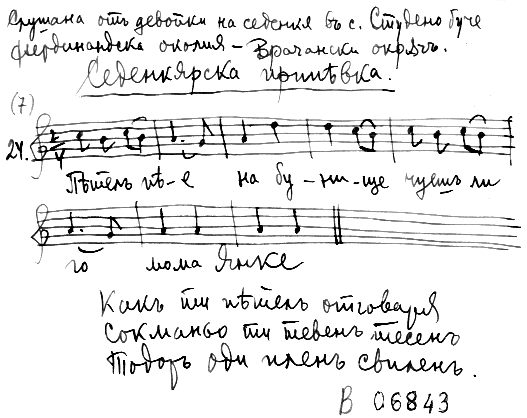 Слушана отъ девойки на седенкя въ с. Студено буче
фердинандска околия – Врачански окрѫгъ.
Седенкярска припѣвка.
(7)
24. 2/4
Пѣтелъ пѣ-е на бу-ни-ще чуешъ ли
го мома Янке
Какъ ти пѣтелъ отговаря
сокманьо ти тевенъ тесенъ
Тодоръ оди иленъ свиленъ.
В 06843